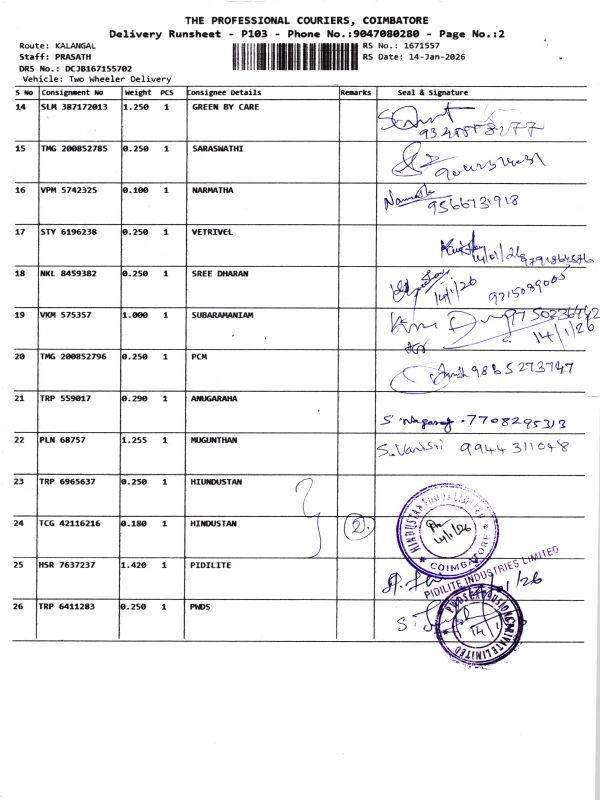 THE PROFESSIONAL COURIERS, COIMBATORE
Delivery Runsheet - P103 - Phone No.:9047080280 - Page No.:2
Route: KALANGAL
RS No.: 1671557
Staff: PRASATH
RS Date: 14-Jan-2026
DRS No.: DCJB167155702
Vehicle: Two Wheeler Delivery
S No Consignment No Weight PCS Consignee Details Remarks Seal & Signature
14 SLM 387172013 1.250 1 GREEN BY CARE
15 TMG 200852785 0.250 1 SARASWATHI
16 VPM 5742325 0.100 1 NARMATHA
9566731918
17 STY 6196238 0.250 1 VETRIVEL
14/01/26
18 NKL 8459382 0.250 1 SREE DHARAN
14/1/26
19 VKM 575357 1.000 1 SUBARAMANIAM
14/1/26
20 TMG 200852796 0.250 1 PCM
9865273747
21 TRP 559017 0.290 1 ANUGARAHA
S. Nagaraj . 7708295313
22 PLN 68757 1.255 1 MUGUNTHAN
S. Vanisri 9944311048
23 TRP 6965637 0.250 1 HIUNDUSTAN
24 TCG 42116216 0.180 1 HINDUSTAN 2.
HINDUSTAN FOODS LIMITED
COIMBATORE
14/1/26
25 HSR 7637237 1.420 1 PIDILITE
PIDILITE INDUSTRIES LIMITED
26 TRP 6411283 0.250 1 PWDS
PRIVATE LIMITED